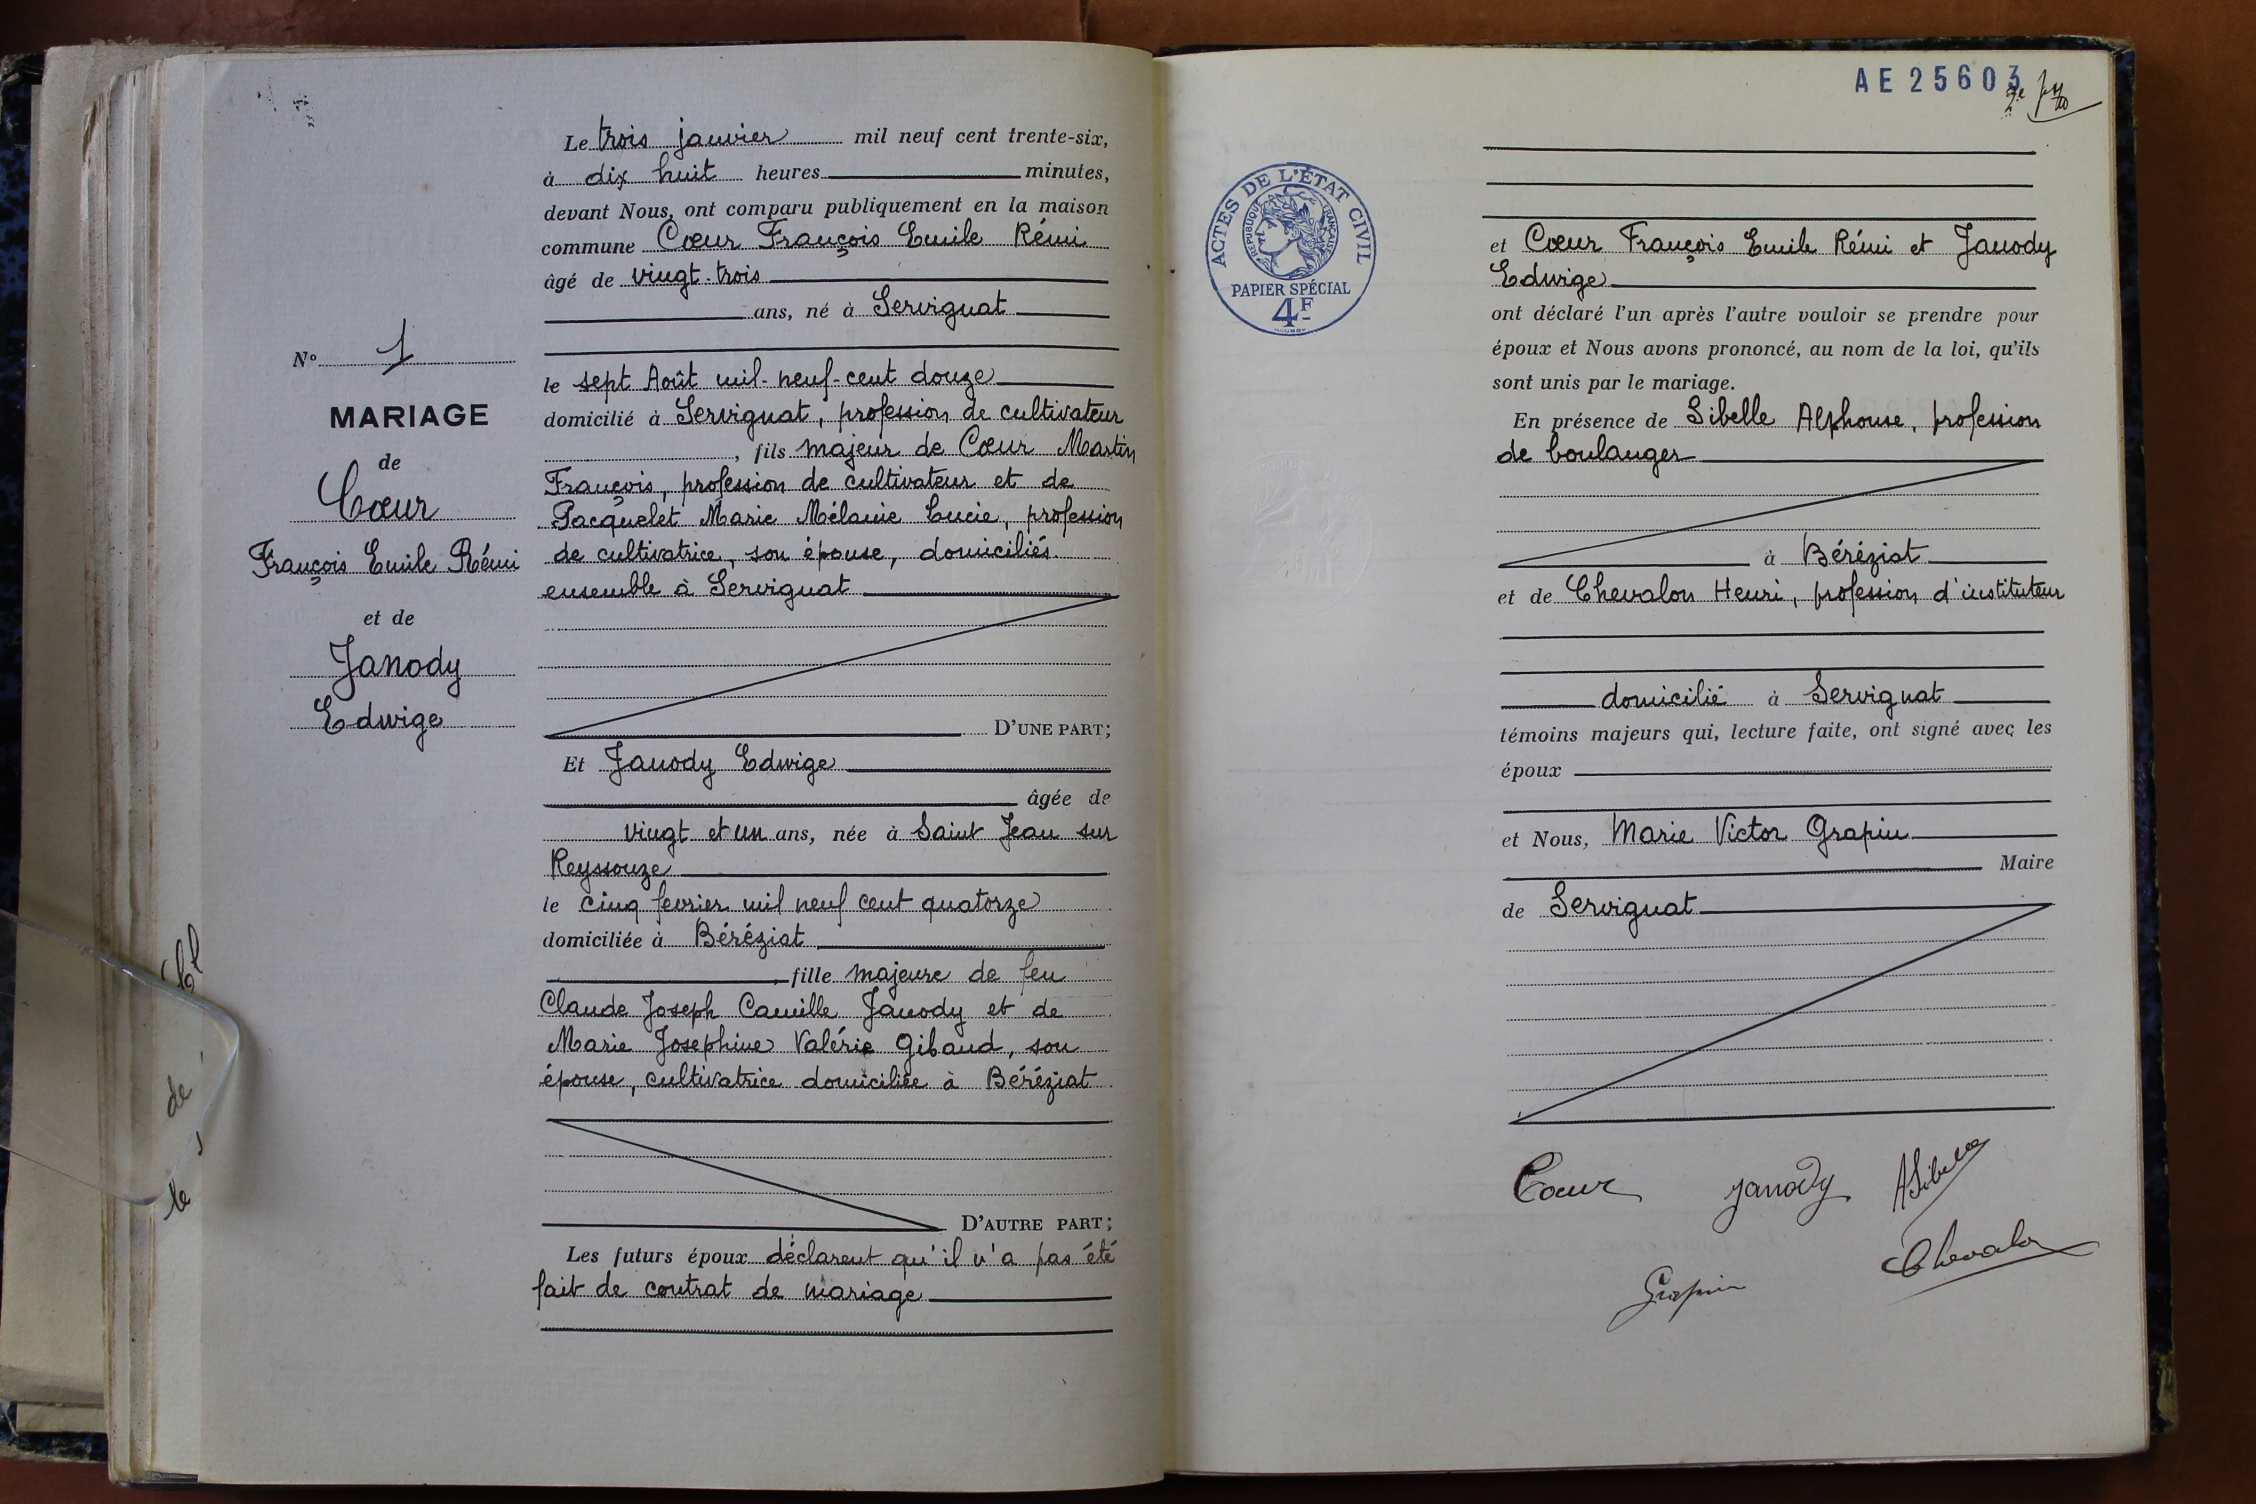 Le trois janvier mil neuf cent trente-six,
à dix huit heures minutes,
devant Nous, ont comparu publiquement en la maison
commune Cœur François Emile Rémi
âgé de vingt-trois
ans, né à Servignat
le sept Août mil-neuf-cent douze
domicilié à Servignat, profession de cultivateur
, fils majeur de Cœur Martin
François, profession de cultivateur et de
Pacquelet Marie Mélanie Lucie, profession
de cultivatrice, son épouse, domiciliés
ensemble à Servignat
D'UNE PART;
Et Janody Edwige
âgée de
vingt et un ans, née à Saint Jean sur
Reyssouze
le cinq fevrier mil neuf cent quatorze
domiciliée à Béréziat
, fille majeure de feu
Claude Joseph Camille Janody et de
Marie Josephine Valérie Gibaud, son
épouse, cultivatrice domiciliée à Béréziat
D'AUTRE PART;
Les futurs époux déclarent qu'il n'a pas été
fait de contrat de mariage
N° 1
MARIAGE
de
Cœur
François Emile Rémi
et de
Janody
Edwige
de
le
AE 25603
2e
ACTES DE L'ÉTAT CIVIL
RÉPUBLIQUE FRANÇAISE
PAPIER SPÉCIAL
4F
et Cœur François Emile Rémi et Janody
Edwige
ont déclaré l'un après l'autre vouloir se prendre pour
époux et Nous avons prononcé, au nom de la loi, qu'ils
sont unis par le mariage.
En présence de Sibelle Alphonse, profession
de boulanger
à Béréziat
et de Chevalon Henri, profession d'instituteur
domicilié à Servignat
témoins majeurs qui, lecture faite, ont signé avec les
époux
et Nous, Marie Victor Grapin
Maire
de Servignat
Cœur Janody ASibelle
Chevalon
Grapin